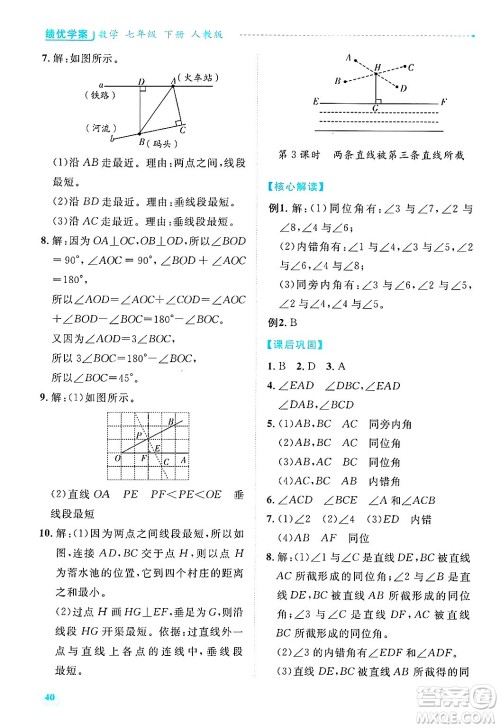 绩优学案 数学 七年级 下册 人教版
7. 解:如图所示。
D A (火车站)
a
(铁路)
(河流) C
b B (码头)
(1)沿 AB 走最近。理由:两点之间,线段
最短。
(2)沿 BD 走最近。理由:垂线段最短。
(3)沿 AC 走最近。理由:垂线段最短。
8. 解:因为 OA⊥OC,OB⊥OD,所以∠BOD
=90°,∠AOC=90°,∠BOD+∠AOC=
180°,
所以∠AOD+∠BOC=∠BOD+∠AOC
=180°。
因为∠AOD=3∠BOC,
所以 3∠BOC+∠BOC=180°,
所以∠BOC=45°。
9. 解:(1)如图所示。
B
P
O F E A
(2)直线 OA PE PF<PE<OE 垂
线段最短
10. 解:(1)因为两点之间线段最短,所以如
图,连接 AD,BC 交于点 H,则点 H
为蓄水池的位置,它到四个村庄的距离
之和最小。
(2)过点 H 作 HG⊥EF,垂足为 G,则
沿线段 HG 开渠最短。理由:直线外一
点与直线上各点的连线中,垂线段
最短。
40
A C
H
B D
E G F
第 3 课时 两条直线被第三条直线所截
【核心解读】
例1. 解:(1)同位角有:∠3 与∠7,∠2 与∠8,
∠4 与∠6;
(2)内错角有:∠1 与∠4,∠3 与∠5,
∠2 与∠6,∠4 与∠8;
(3)同旁内角有:∠3 与∠6,∠2 与∠5,
∠2 与∠4,∠4 与∠5。
例2. B
【课后巩固】
1. B 2. D 3. A
4. ∠EAD ∠DBC,∠EAD ∠DBC,
∠EAD
5. (1)AB,BC AC 同旁内角
(2)AB,AC BC 同位角
(3)AB,BC AC 内错角
6. ∠ACD,∠ACE ∠A 和∠ACE
7. (1)∠2 (2)∠4 (3)∠2 和∠4
(4)同位
8. 解:(1)∠1 与∠2 是直线 DE,BC 被直线
AC 所截形成的同位角,∠1 与∠3 是直
线 DE,BC 被直线 AC 所截形成的同旁
内角。
(2)∠3 与∠C 是直线 DF,BC 被直线 AC
所截形成的同位角。
(3)∠B 的同位角有∠ADF,∠ADE。
(4)∠EDF 的内错角是∠DFB。